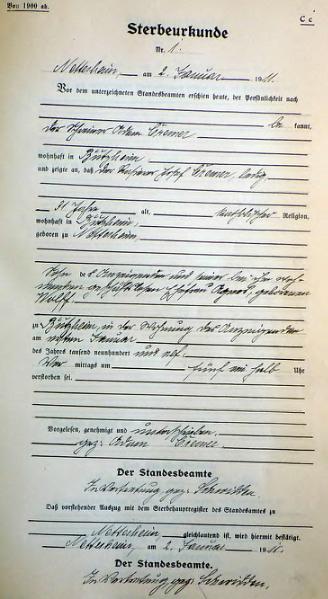 Von 1900 ab.
C c
Sterbeurkunde
Nr. 1.
Netterheim, am 2. Januar 1911.
Vor dem unterzeichneten Standesbeamten erschien heute, der Persönlichkeit nach
be kannt,
der Schreiner Adam Cremer
wohnhaft in Bützheim
und zeigte an, daß der Josef Cremer, ledig
31 Jahre alt, katholischer Religion,
wohnhaft in Bützheim
geboren zu Netterheim
Sohn des Anzeigenden und seiner bei ihm
Ehefrau Agnes, geborenen
Wolff
zu Bützheim, in der Wohnung des Anzeigenden
am ersten Januar
des Jahres tausend neunhundert und elf
Vor mittags um fünf ein halb Uhr
verstorben sei.
Vorgelesen, genehmigt und unterschrieben.
gez: Adam Cremer
Der Standesbeamte
In Vertretung gez:
Daß vorstehender Auszug mit dem Sterbehauptregister des Standesamtes zu
Netterheim gleichlautend ist, wird hiermit bestätigt.
Netterheim, am 2. Januar 1911.
Der Standesbeamte.
In Vertretung gez: